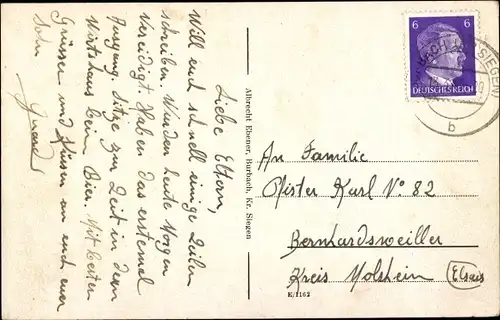 Liebe Eltern,
Will euch schnell einige Zeilen
schreiben. Wurden heute Morgen
vereidigt. Haben das erstemal
Ausgang. Sitze zur Zeit in dem
Wirtshaus beim Bier. Mit besten
Grüssen und Küssen an euch euer
Sohn
Albrecht Ebener, Burbach, Kr. Siegen
6 6
DEUTSCHES REICH
BACH (KR. SIEGEN)
b
An Familie
Pfister Karl No 82
Bernhardsweiller
Kreis Molsheim (Elsass)
E/1162